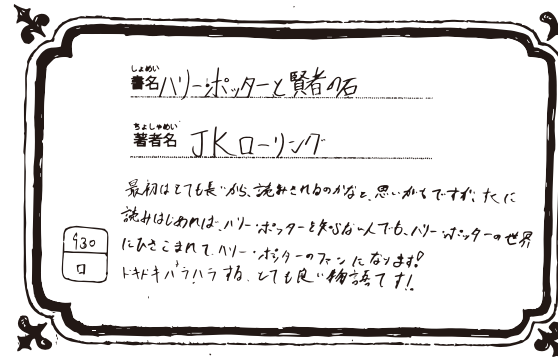 しょめい
書名 ハリー・ポッターと賢者の石
ちょしゃめい
著者名 JKローリング
最初はとても長いから、読みきれるのかなと、思いがちですが、
読みはじめれば、ハリー・ポッターを知らない人でも、ハリー・ポッターの世界
にひきこまれて、ハリー・ポッターのファンになります!
ドキドキハラハラする、とても良い物語です!
930
ロ